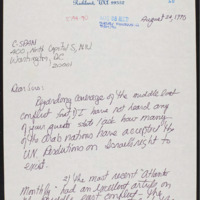 Richland, WA 99352
August 23, 1990
C-SPAN
400 North Capitol St, N.W.
Washington, DC
20001
Dear Sirs:
Regarding coverage of the middle east
conflict 1) I have not heard any
of your guests state/ask how many
of the arab nations have accepted the
U.N. Resolutions on Israel's right to
exist.
2) The most recent "Atlantic
Monthly" had an excellent article on
the middle east conflict - The